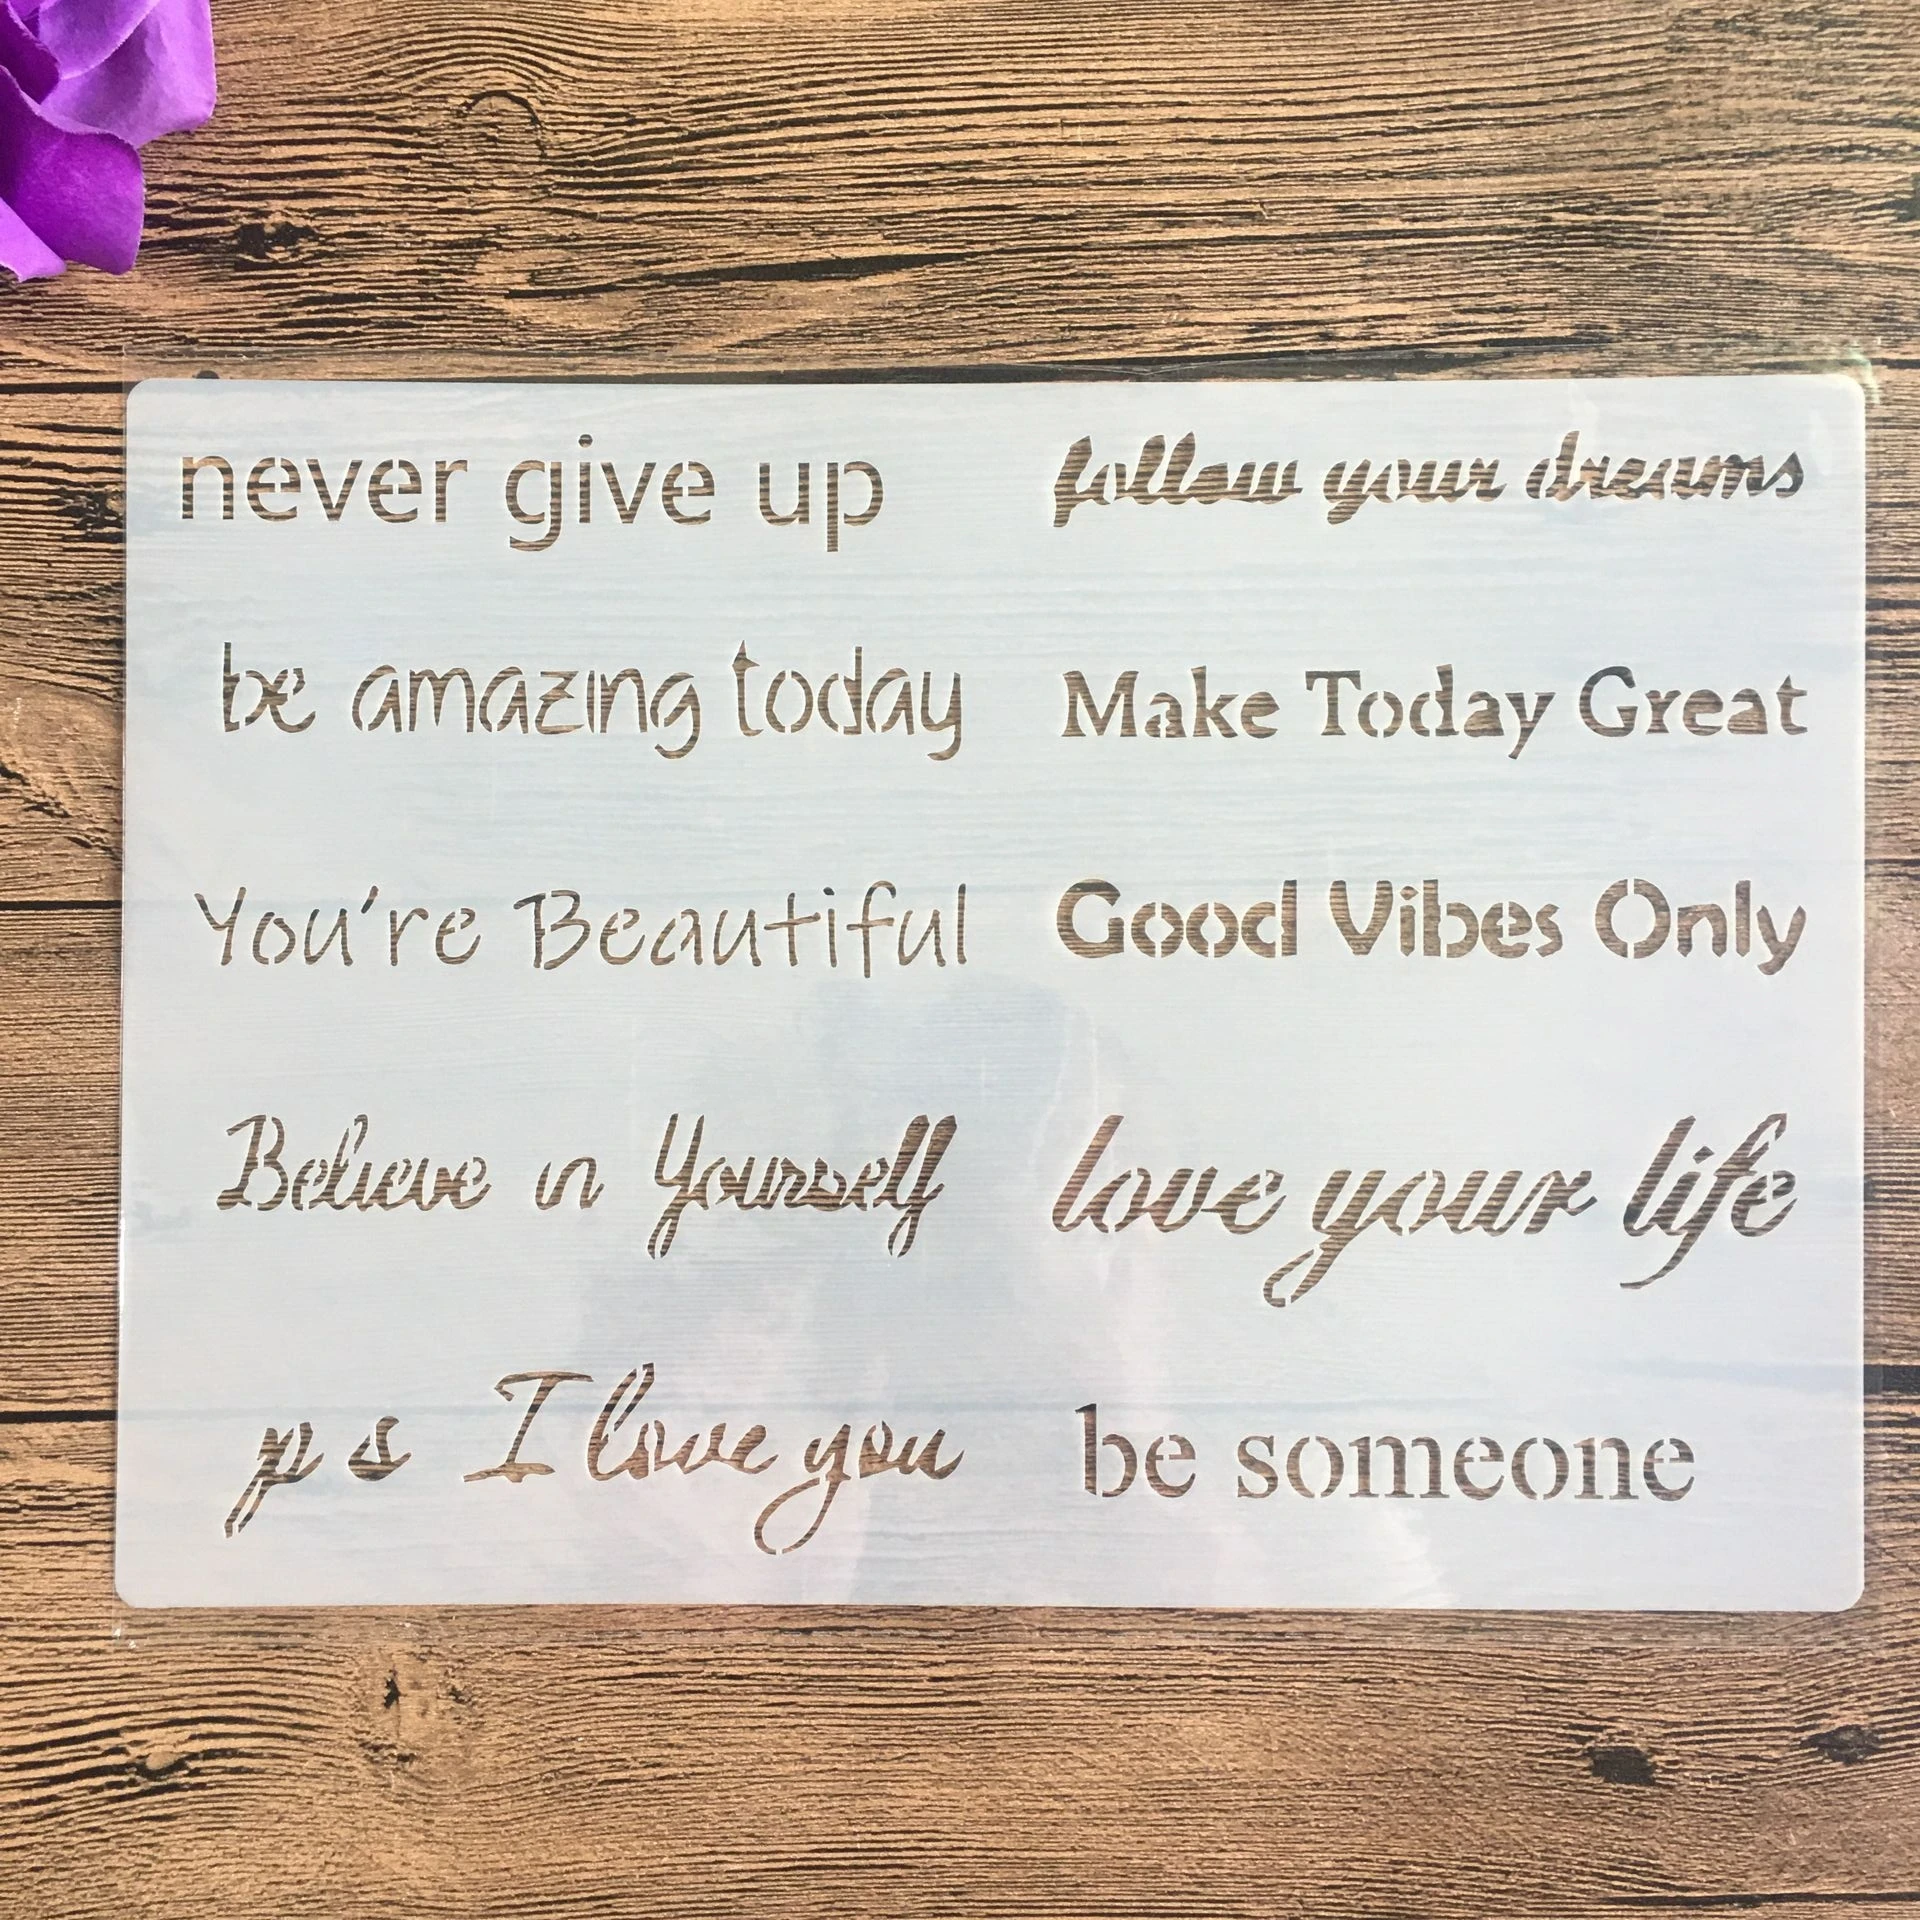 never give up
follow your dreams
be amazing today
Make Today Great
You're Beautiful
Good Vibes Only
Believe in Yourself
love your life
p s I love you
be someone